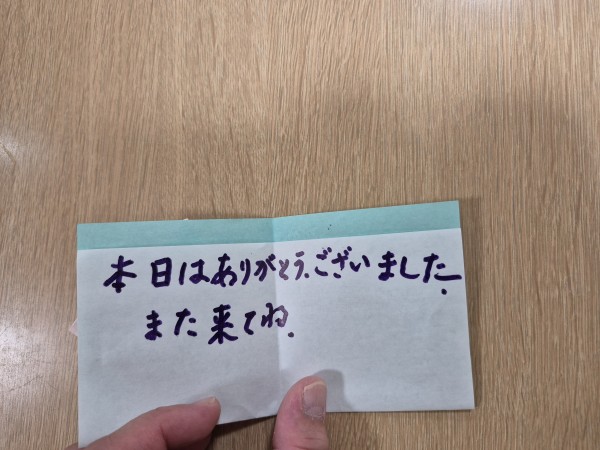 本日はありがとう.ございました.
また来てね.